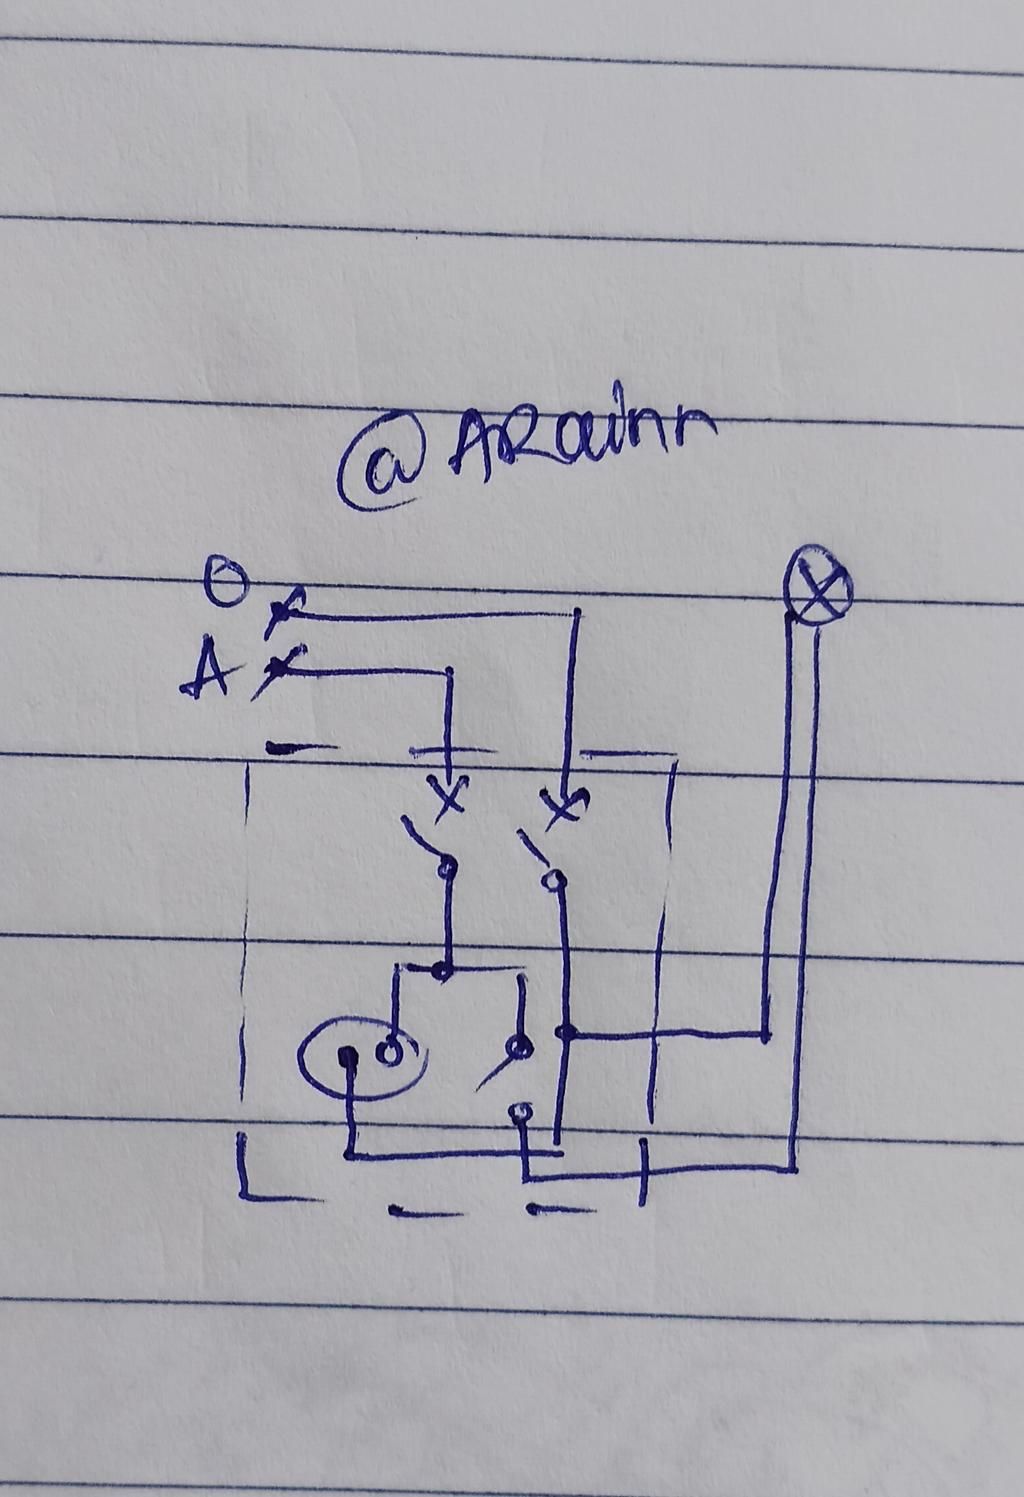 @ARainn
O
A